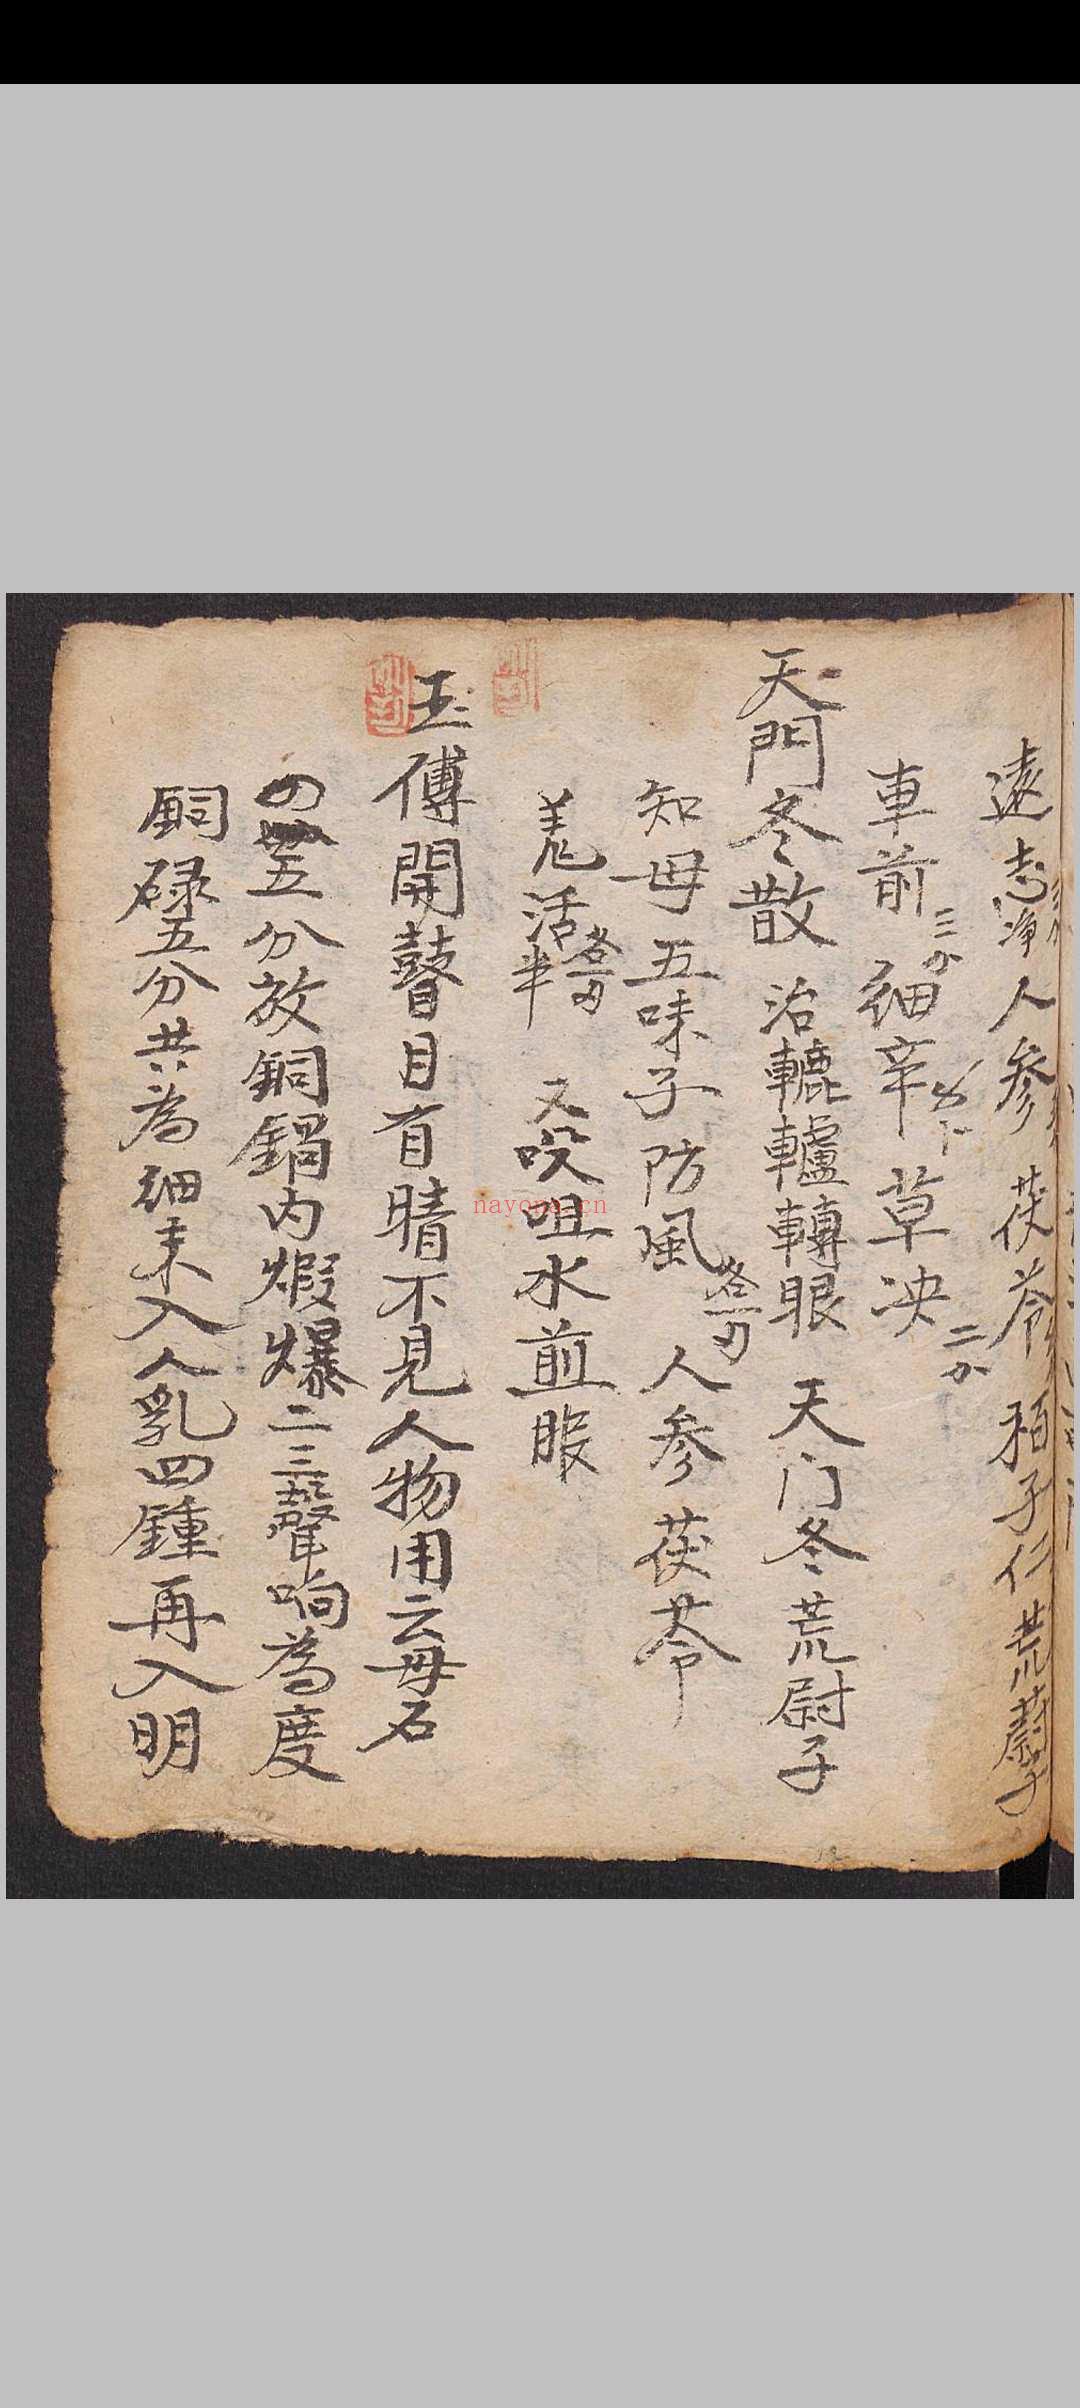 遠志淨人參茯苓栢子仁荒蔚子
車前三分細辛草决二分
天門冬散 治轆轤轉眼 天门冬荒尉子
知母五味子防風各一刃人參茯苓
羗活各一刃半 又㕮咀水煎服
玉傅開瞽目有睛不見人物用云母石
五分放銅鍋内煆爆二三聲响為度
銅碌五分共為細末入人乳四鍾再入明
nayona.cn